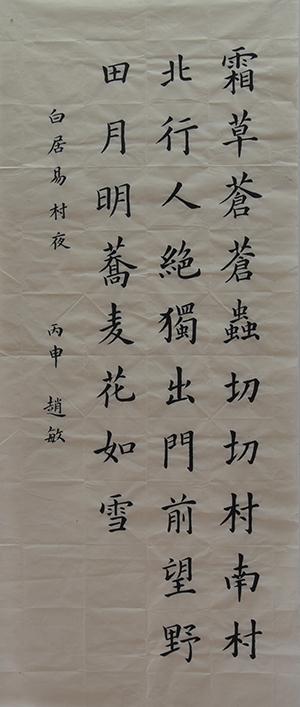 霜草蒼蒼蟲切切村南村
北行人絕獨出門前望野
田月明蕎麦花如雪
白居易村夜 丙申 趙敏